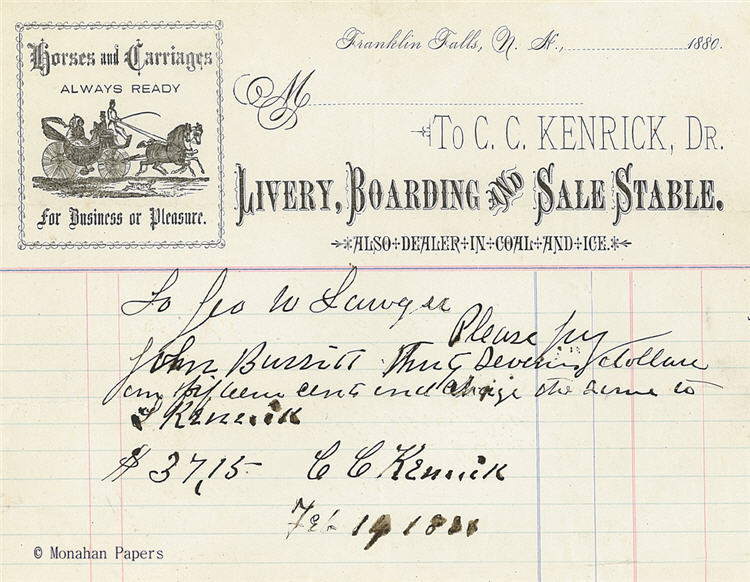 Horses and Carriages
ALWAYS READY
For Business or Pleasure.
Franklin Falls, N. H., 1880.
M
To C. C. KENRICK, Dr.
LIVERY, BOARDING AND SALE STABLE.
ALSO DEALER IN COAL AND ICE.
To Geo W Sawyer
Please pay
John Burritt Thirty Seven dollars
an fifteen cents and charge the same to
S Kenrick
$ 37,15 C C Kenrick
Feb 19 1880
© Monahan Papers